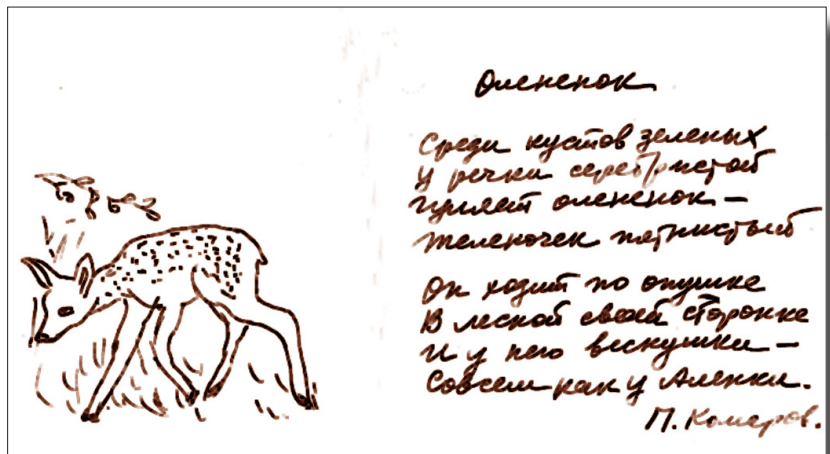 Олененок
Среди кустов зеленых
У речки серебристой
Гуляет олененок –
Теленочек пятнистый
Он ходит по опушке
В лесной своей сторонке
И у него веснушки –
Совсем как у Аленки.
П. Комаров.